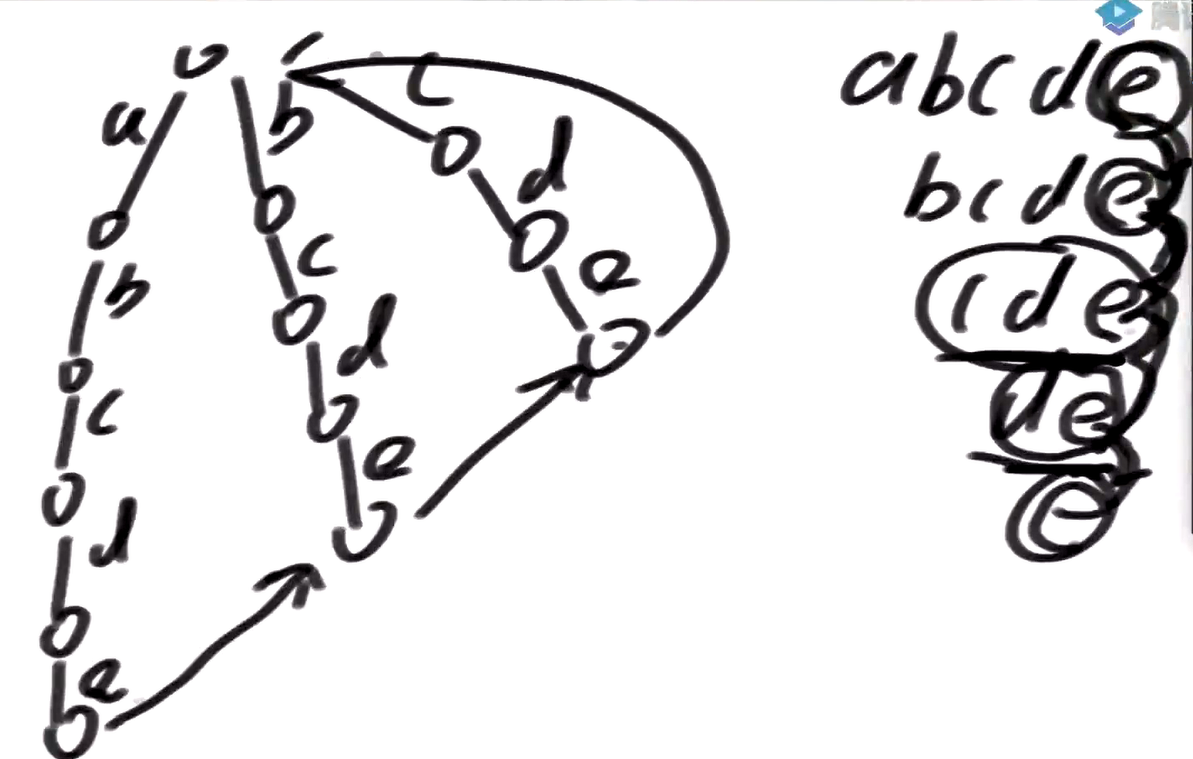 a b c
b d
c e
d
c
b d
e
c
d
e
abcde
bcde
cde
de
e